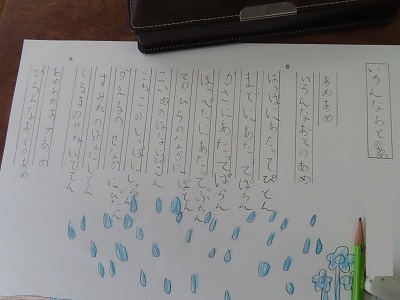 いろんなおとのあめ
あめあめ
いろんなおとのあめ
はっぱにあたってぴとん
まどにあたってぱちん
かさにあたってぱらん
ほっぺたにあたってぷちん
てのひらのなかにぽとん
こいぬのはなにぴこん
こねこのしっぽにしゅるん
かえるのせなかにぴたん
すみれのはなにしとん
くるまのやねにとてん
あめあめあめあめ
いろんなおとのあめ